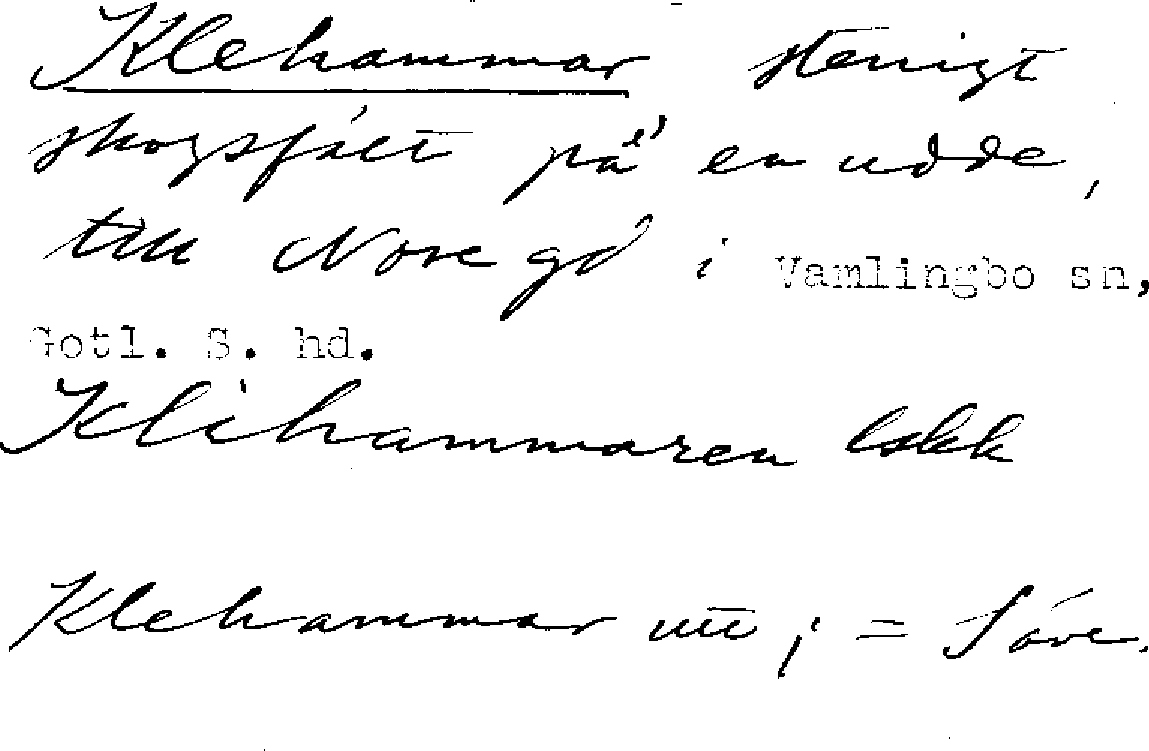 Klehammar stenigt
skogsfält på en udde,
till Nore gd i Vamlingbo sn,
Gotl. S. hd.
Klihammaren Eskk
Klehammar utt ; = Säve.